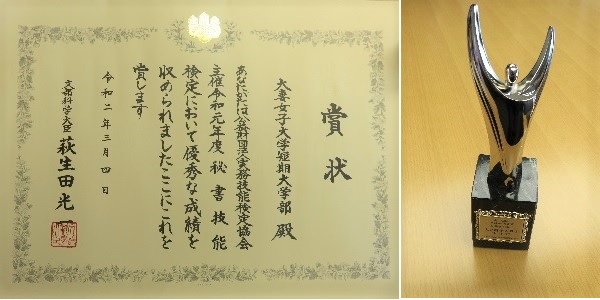 賞状
大妻女子大学短期大学部 殿
あなたがたは公益財団法人実務技能検定協会
主催令和元年度秘書技能
検定において優秀な成績を
収められましたここにこれを
賞します
令和二年三月四日
文部科学大臣 萩生田光一